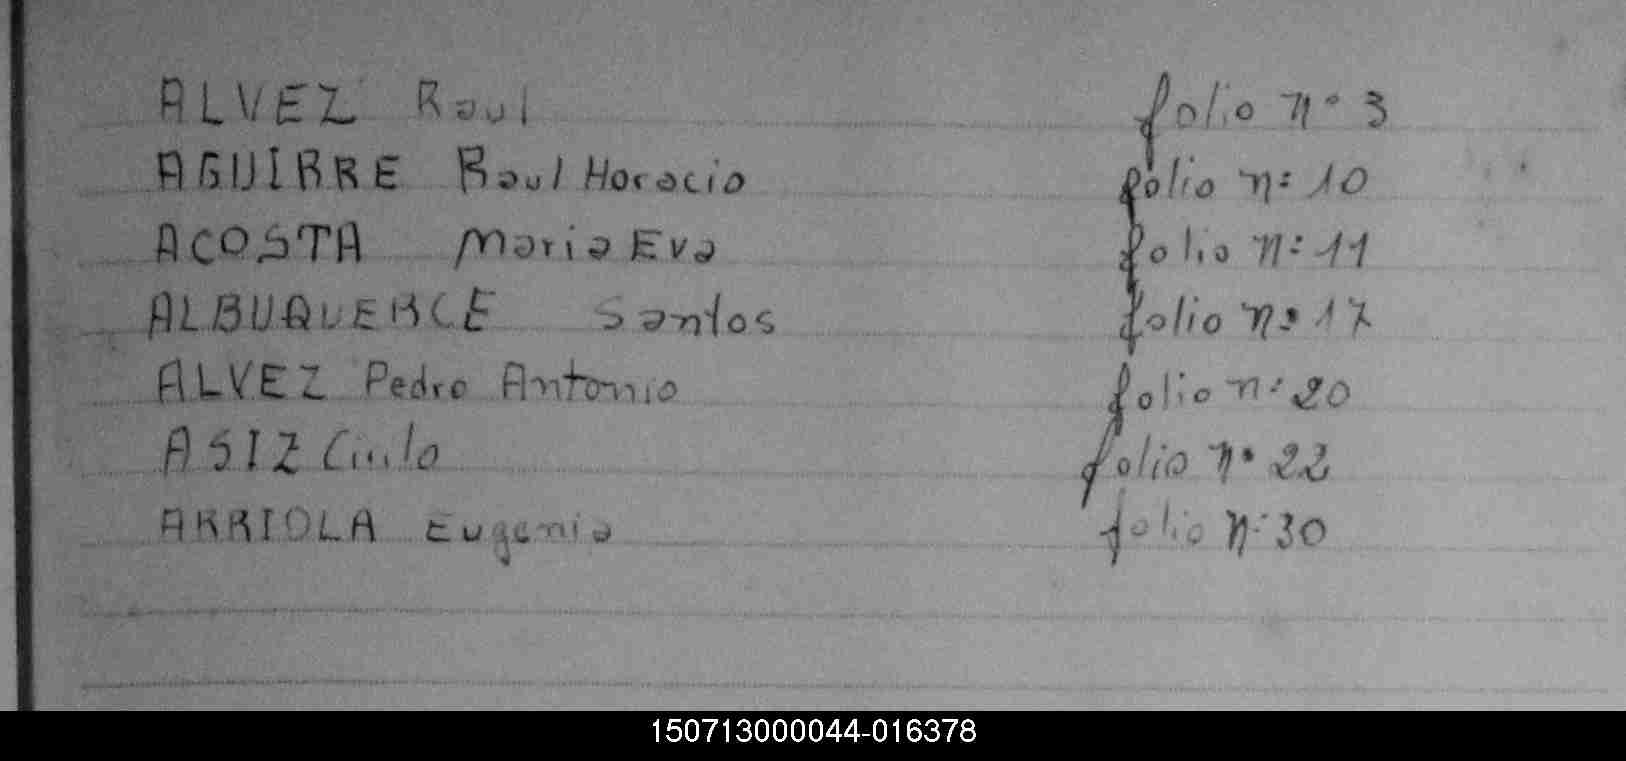 ALVEZ Raul folio n° 3
AGUIRRE Raul Horacio folio n° 10
ACOSTA Maria Eva folio n° 11
ALBUQUERCE Santos folio n° 17
ALVEZ Pedro Antonio folio n° 20
ASIZ folio n° 22
ARRIOLA Eugenia folio n° 30
150713000044-016378